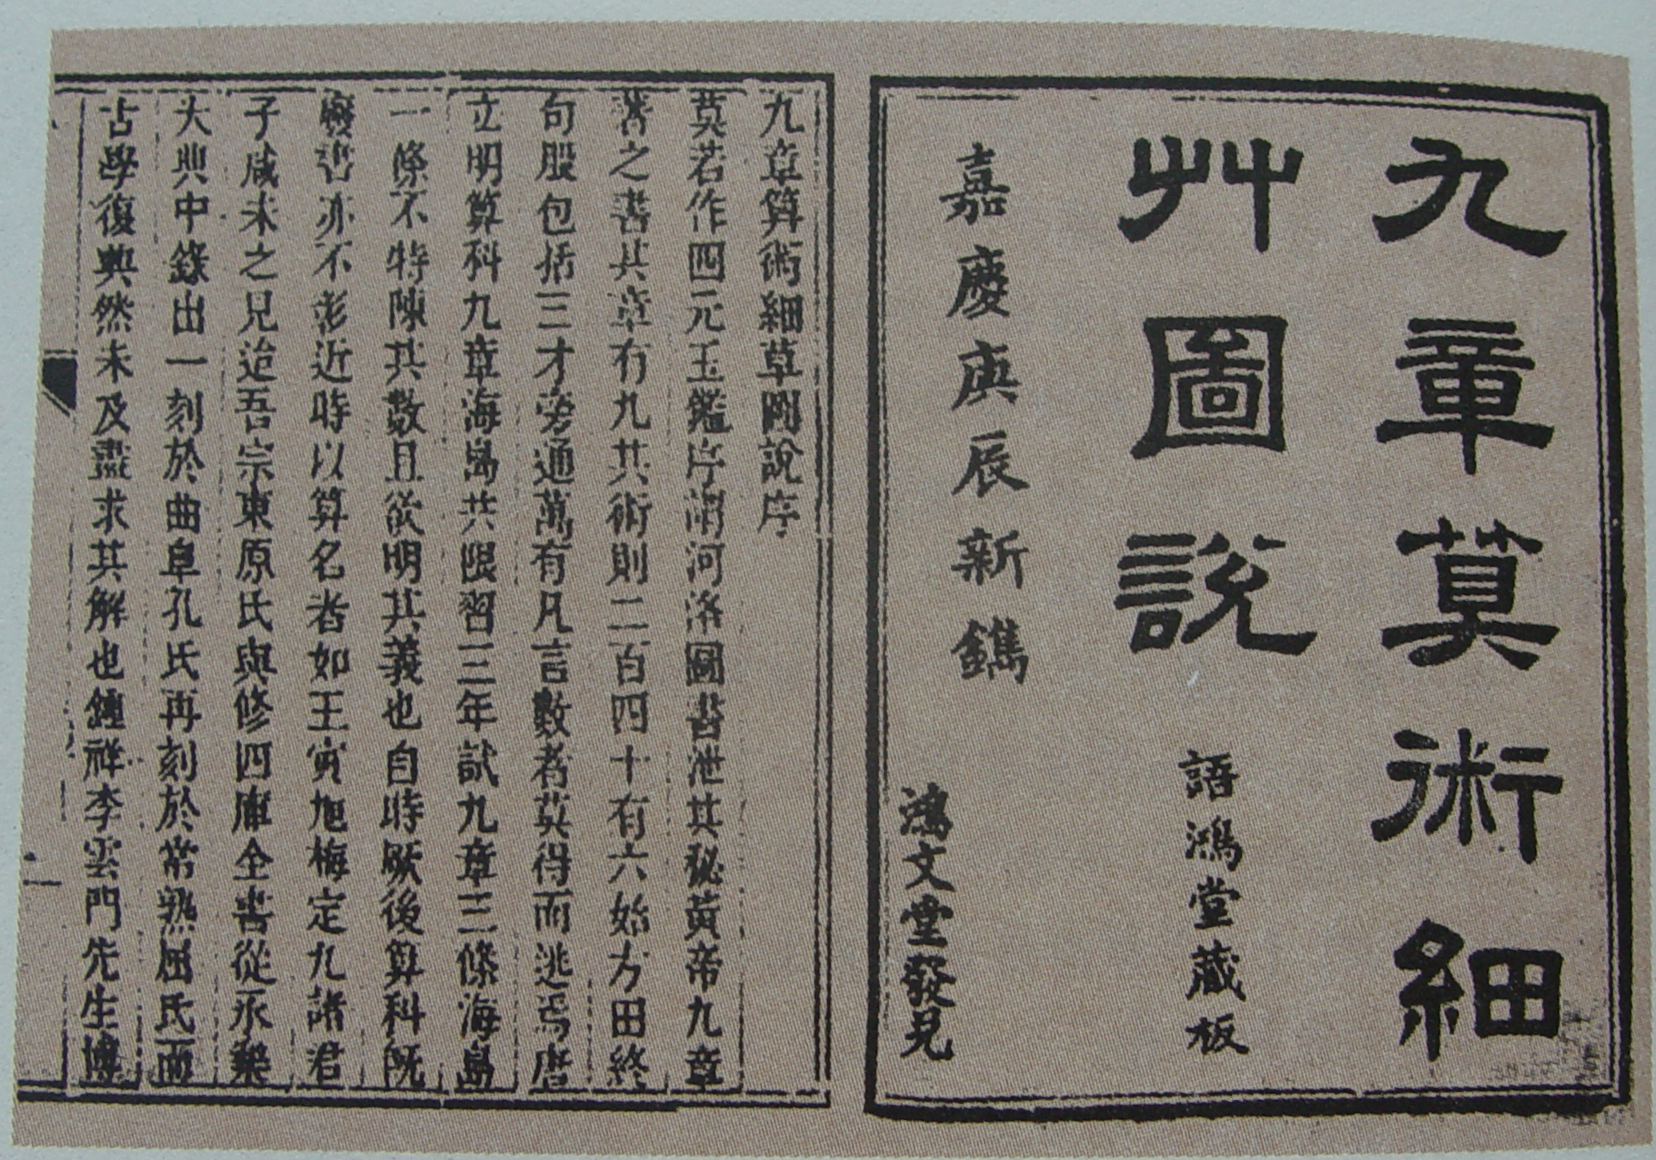 九章算術細
艸圖說
語鴻堂藏板
嘉慶庚辰新鐫
鴻文堂發兌
九章算術細草圖說序
莫若作四元玉鑑序謂河洛圖書泄其秘黃帝九章
著之書其章有九其術則二百四十有六始方田終
句股包括三才旁通萬有凡言數者莫得而逃焉唐
立明算科九章海島共限習三年試九章三條海島
一條不特陳其數且欲明其義也自時厥後算科既
廢書亦不彰近時以算名者如王寅旭梅定九諸君
子咸未之見迨吾宗東原氏與修四庫全書從永樂
大典中錄出一刻於曲阜孔氏再刻於常熟屈氏而
古學復興然未及盡求其解也鍾祥李雲門先生博